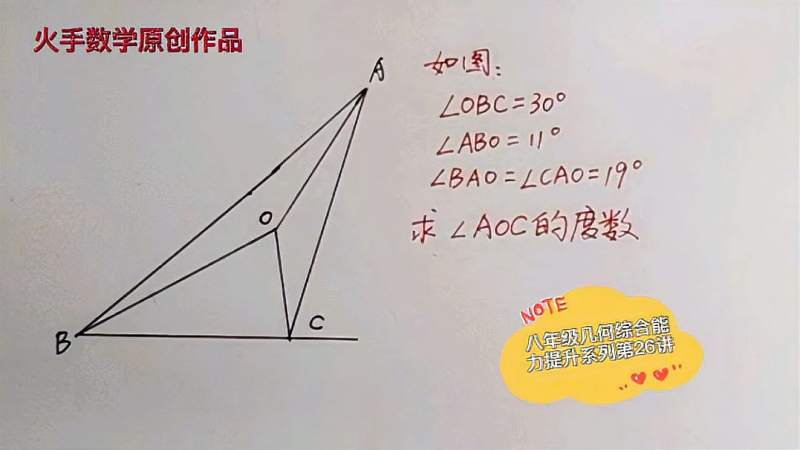 火手数学原创作品
如图:
∠OBC=30°
∠ABO=11°
∠BAO=∠CAO=19°
求∠AOC的度数
A
O
B
C
NOTE
八年级几何综合能
力提升系列第26讲